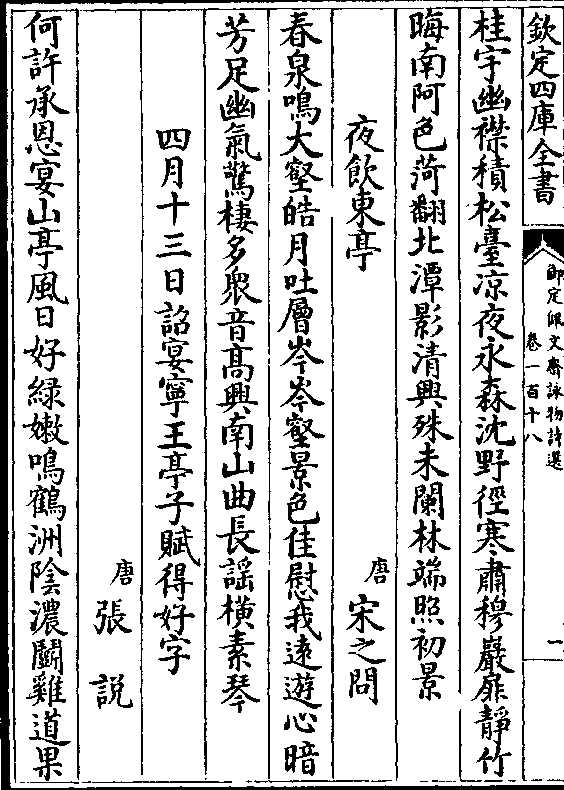 欽定四庫全書
御定佩文齋詠物詩選
卷一百十八
一
桂宇幽襟積松臺凉夜永森沈野徑寒肅穆巖扉靜竹
晦南阿色荷翻北潭影清興殊未闌林端照初景
夜飲東亭
唐 宋之問
春泉鳴大壑皓月吐層岑岑壑景色佳慰我遠遊心暗
芳足幽氣驚棲多衆音高興南山曲長謡橫素琴
四月十三日詔宴寧王亭子賦得好字
唐 張說
何許承恩宴山亭風日好綠嫩鳴鶴洲陰濃鬭雞道果